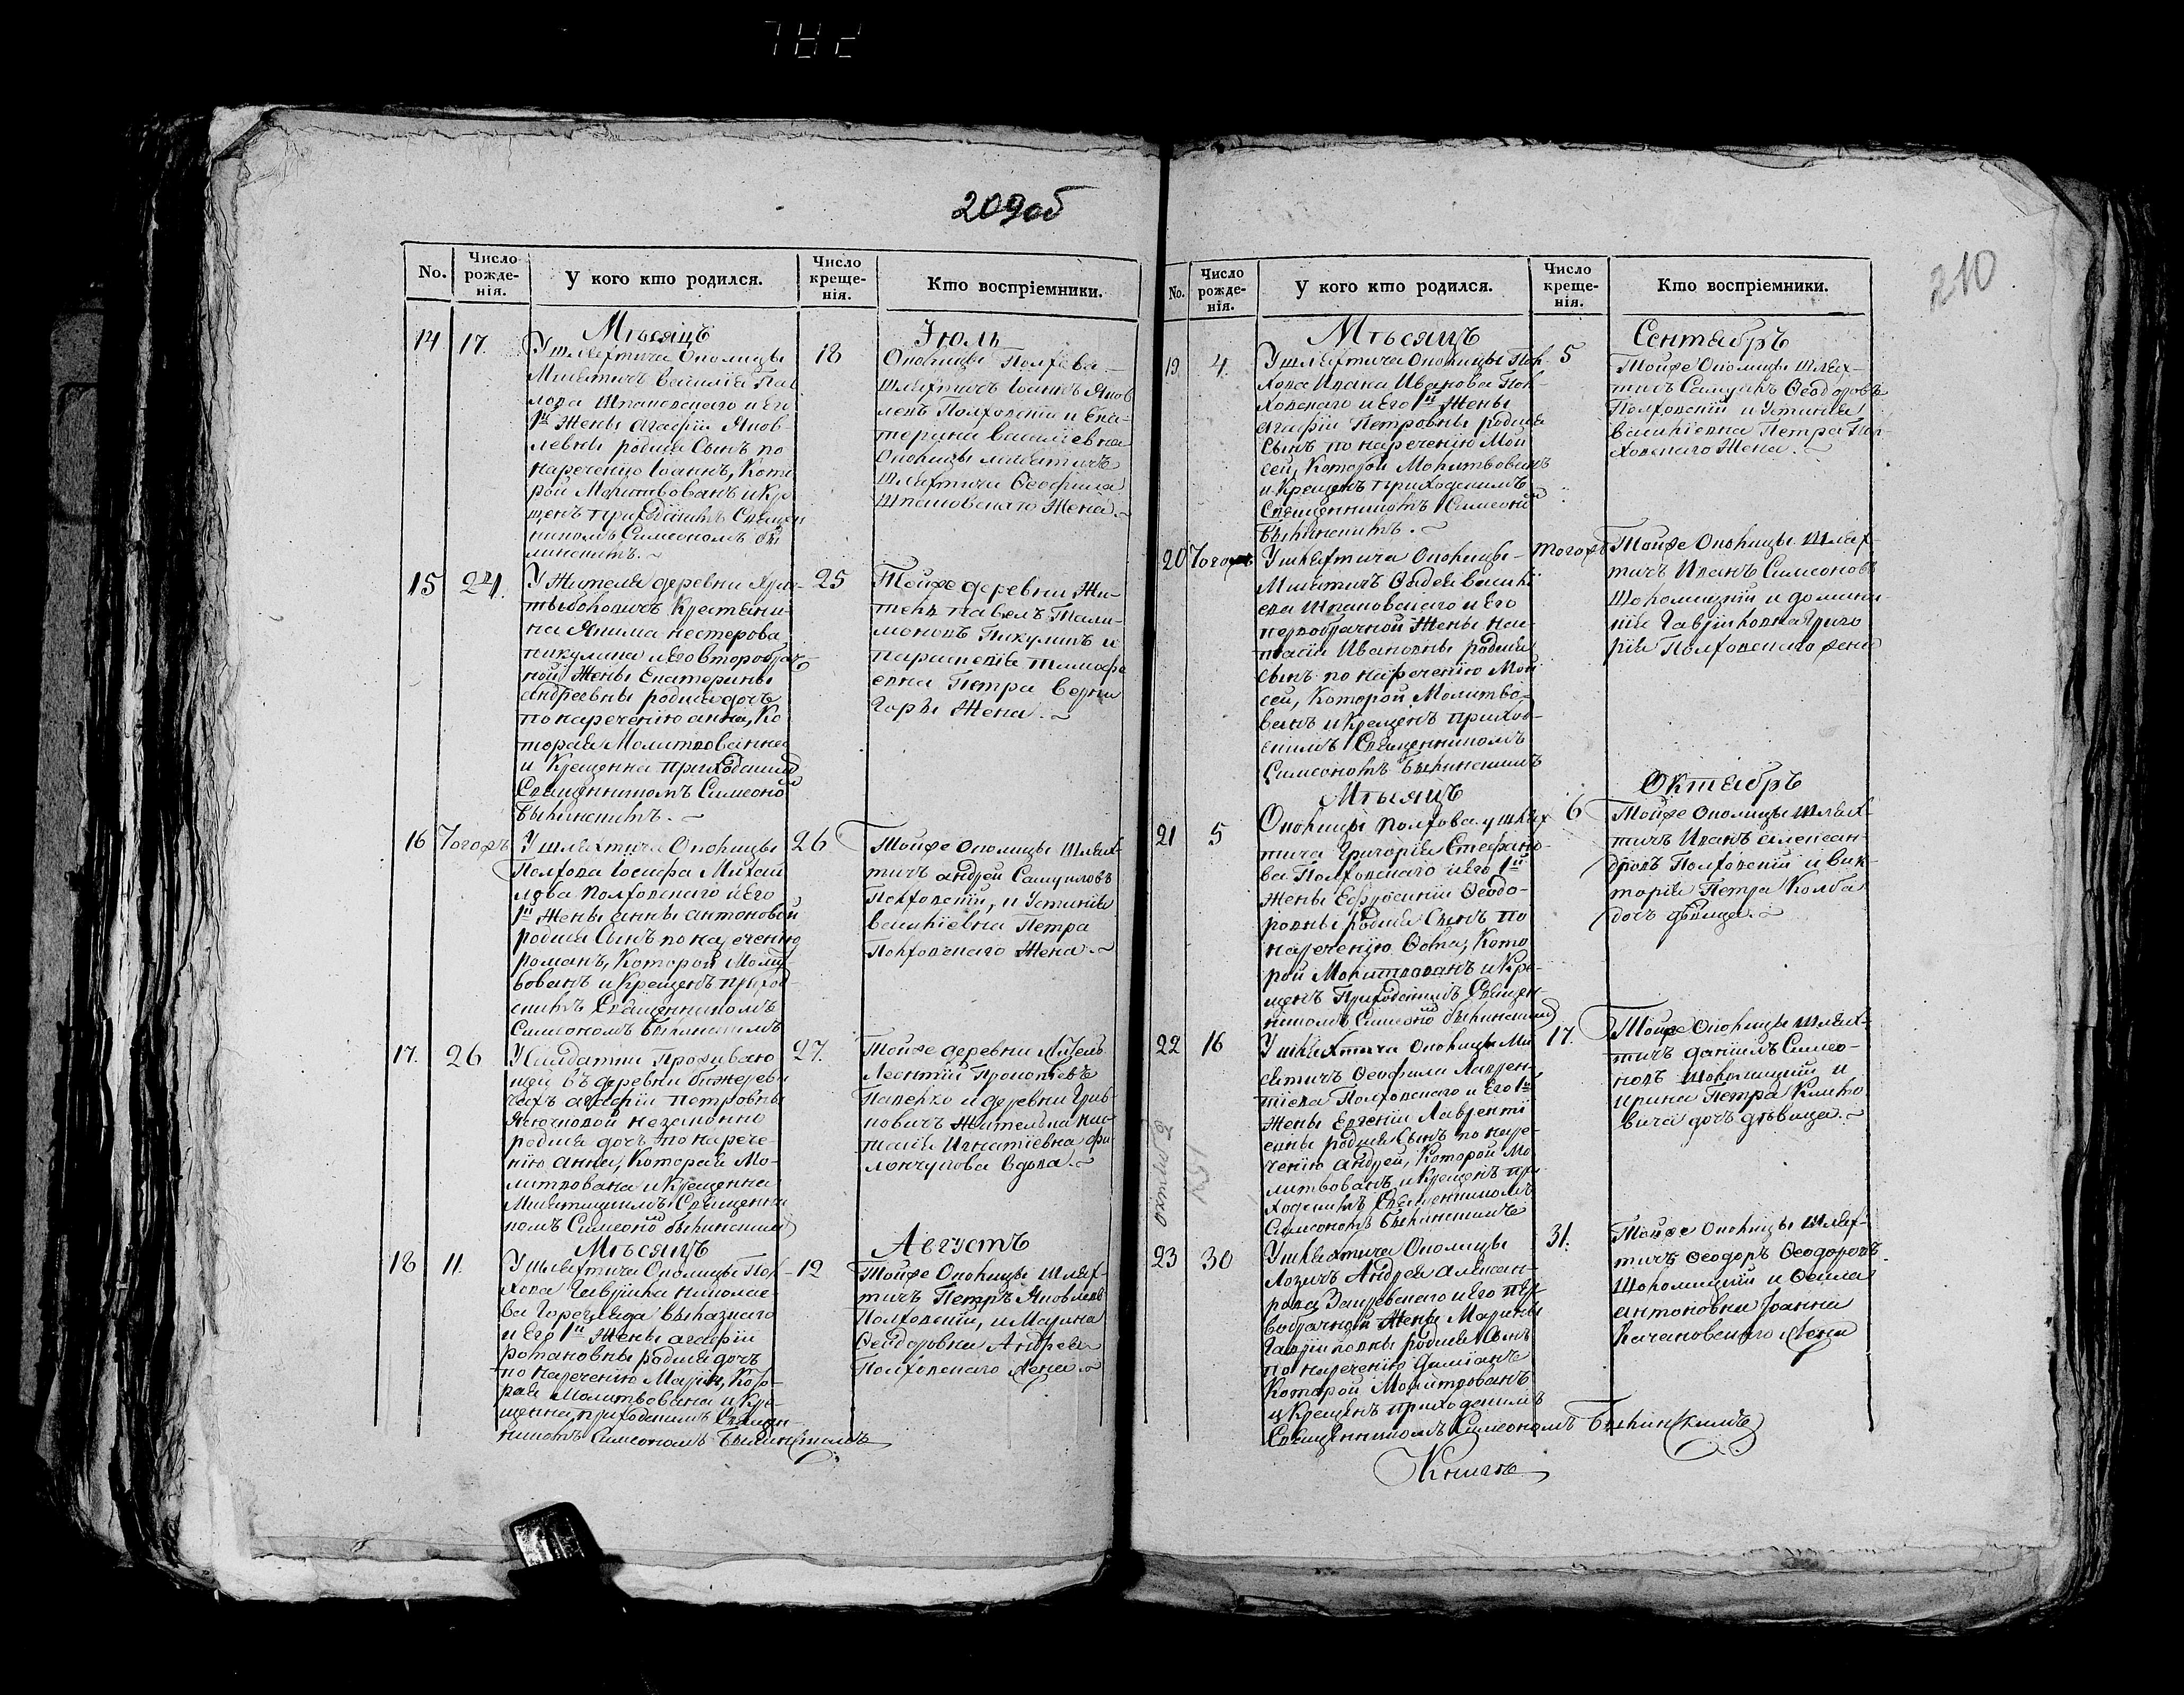 209 об
No.
Число рожде-нія.
У кого кто родился.
Число креще-нія.
Кто воспріемники.
Мѣсяцъ Іюль
14 17. 18
У шляхтича Околицы
Милятичъ Василія Пав
лова Шпаковскаго и Его
1й Жены Агафіи Яков
левны родился Сынъ по
нареченію Іоаннъ, Кото
рой Молитвованъ и Кре
щенъ приходскимъ Священ
никомъ Симеономъ
Околицы Полхова
шляхтичъ Іоаннъ Яков
левъ Полховскій и Ека-
терина Василіевна
Околицы Милятичъ
шляхтича Ѳеофила
Шпаковскаго Жена.
15 24. 25
У Жителя деревни
Крестяни-
на Якима Нестерова
Пикулика и Его второбрач
ной Жены Екатерины
Андреевны родилась дочь
по нареченію Анна, Ко
торая Молитвованна
и Крещенна приходскимъ
Священникомъ Симеоно
Тойже деревни Жи-
тель Павелъ
Пикуликъ и
Параскевія Тимофе
евна Петра
Жена.
16 Тогожъ 26
У шляхтича Околицы
Полхова Іосифа Михай
лова Полховскаго и Его
1й Жены Анны Антоновой
родился Сынъ по нареченію
Романъ, Которой Молит
вованъ и Крещенъ приход
скимъ Священникомъ
Симеономъ
Тойже Околицы шлях-
тичъ Андрей Самуиловъ
Полховскій, и Устинія
Василіевна Петра
Полховскаго Жена.
17. 26 27.
У Солдатки Прожываю
щей въ деревни
Агафіи Петровны
незаконно
родилась дочь по нарече-
нію Анна, Которая Мо-
литвована и Крещенна
Милятицкимъ Священни
комъ Симеоно
Тойже деревни Житель
Леонтій Прокопіевъ
и деревни
Жителька На-
талія Игнатіевна
вдова.
Мѣсяцъ Августъ
18 11. 12
У шляхтича Околицы Пол-
хова Гавріила Николае-
ва
и Его 1й Жены Агафіи
Романовны родилась дочь
по нареченію Марія, Кото
рая Молитвована и Кре-
щенна приходскимъ Священ
никомъ Симеономъ
Тойже Околицы шлях-
тичъ Петръ Яковлевъ
Полховскій, и Марина
Ѳеодоровна Андрея
Полховскаго Жена.
210
No.
Число рожде-нія.
У кого кто родился.
Число креще-нія.
Кто воспріемники.
Мѣсяцъ Сентябръ
19. 4. 5
У шляхтича Околицы Пол-
хова Ивана Иванова Пол-
ховскаго и Его 1й Жены
Агафіи Петровны родился
Сынъ по нареченію Мои
сей, Которой Молитвованъ
и Крещенъ приходскимъ
Священникомъ Симеоно
Тойже Околицы шлях-
тичъ Самуилъ Ѳеодоровъ
Полховскій и Устинія
Василіевна Петра Пол-
ховскаго Жена.
20 Тогожъ Тогожъ
У шляхтича Околицы
Милятичъ Василі
ева Шпаковскаго и Его
первобрачной Жены Нас-
тасіи Ивановны родился
Сынъ по нареченію Мои
сей, Которой Молитво-
ванъ и Крещенъ приход-
скимъ Священникомъ
Симеономъ
Тойже Околицы шлях-
тичъ Иванъ Симеоновъ
и Домини-
кія Гавриловна Григо
рія Полховскаго Жена
Мѣсяцъ Октябръ
21 5 6
Околицы Полхова у шлях-
тича Григорія Стефано-
ва Полховскаго и Его 1й
Жены Ефросиніи Ѳеодо-
ровны родился Сынъ по
нареченію Ѳома, Кото
рой Молитвованъ и Кре-
щенъ Приходскимъ Священ-
никомъ Симеоно
Тойже Околицы шлях-
тичъ Иванъ Алексан-
дровъ Полховскій и Вик-
торія Петра Колба
дочь дѣвица.
22 16 17.
У шляхтича Околицы Ми
лятичъ Ѳеофила Лаврен-
тіева Полховскаго и Его 1й
Жены Евгеніи Лавренті
евны родился Сынъ по наре-
ченію Андрей, Которой Мо
литвованъ и Крещенъ при
ходскимъ Священникомъ
Симеономъ
Тойже Околицы шлях-
тичъ Даніилъ Симео-
новъ и
Ирина Петра Климо
вича дочь дѣвица.
23 30 31.
У шляхтича Околицы
Лозичъ Андрея Алексан-
рова и Его пер-
вобрачной Жены Марины
Гавриловны родился Сынъ
по нареченію Даміанъ
Которой Молитвованъ
и Крещенъ приходскимъ
Священникомъ Симеономъ
Тойже Околицы шлях-
тичъ Ѳеодоръ Ѳеодоровъ
и Ѳекла
Антоновна Іоанна
Качановскаго Жена